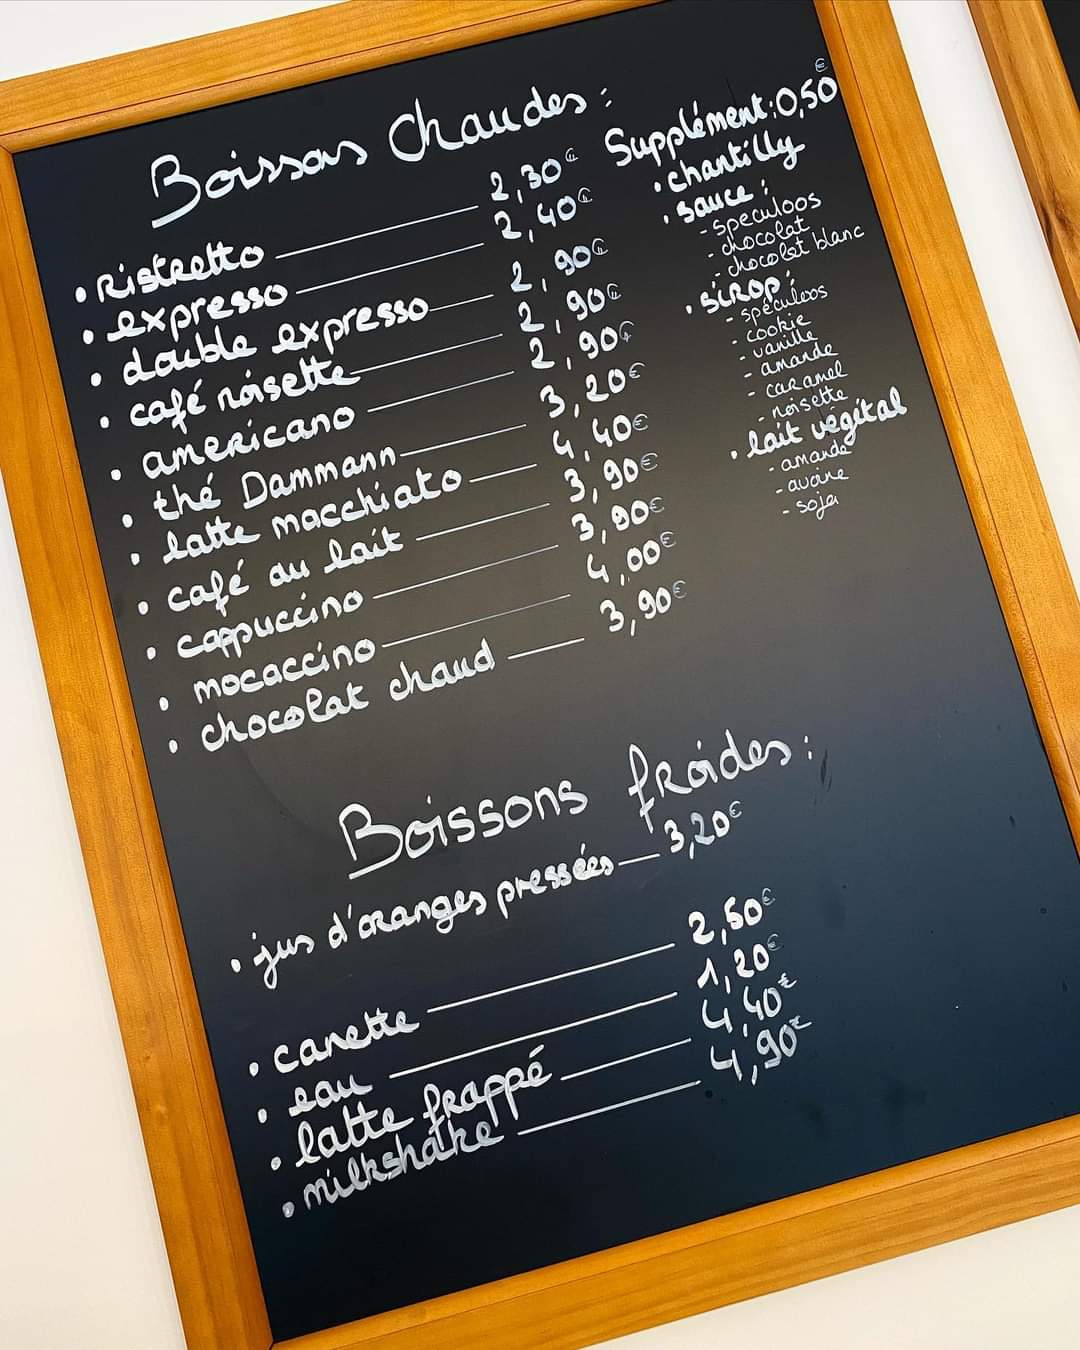 Boissons Chaudes :
• Ristretto — 2,30€
• expresso — 2,40€
• double expresso — 2,90€
• café noisette — 2,90€
• americano — 2,90€
• thé Dammann — 3,20€
• latte macchiato — 4,40€
• café au lait — 3,90€
• cappuccino — 3,90€
• mocaccino — 4,00€
• chocolat chaud — 3,90€
Supplément : 0,50€
• chantilly
• sauce :
- speculoos
- chocolat
- chocolat blanc
• sirop :
- spéculoos
- cookie
- vanille
- amande
- caramel
- noisette
• lait végétal
- amande
- avoine
- soja
Boissons froides :
• jus d'oranges pressées — 3,20€
• canette — 2,50€
• eau — 1,20€
• latte frappé — 4,40€
• milkshake — 4,90€